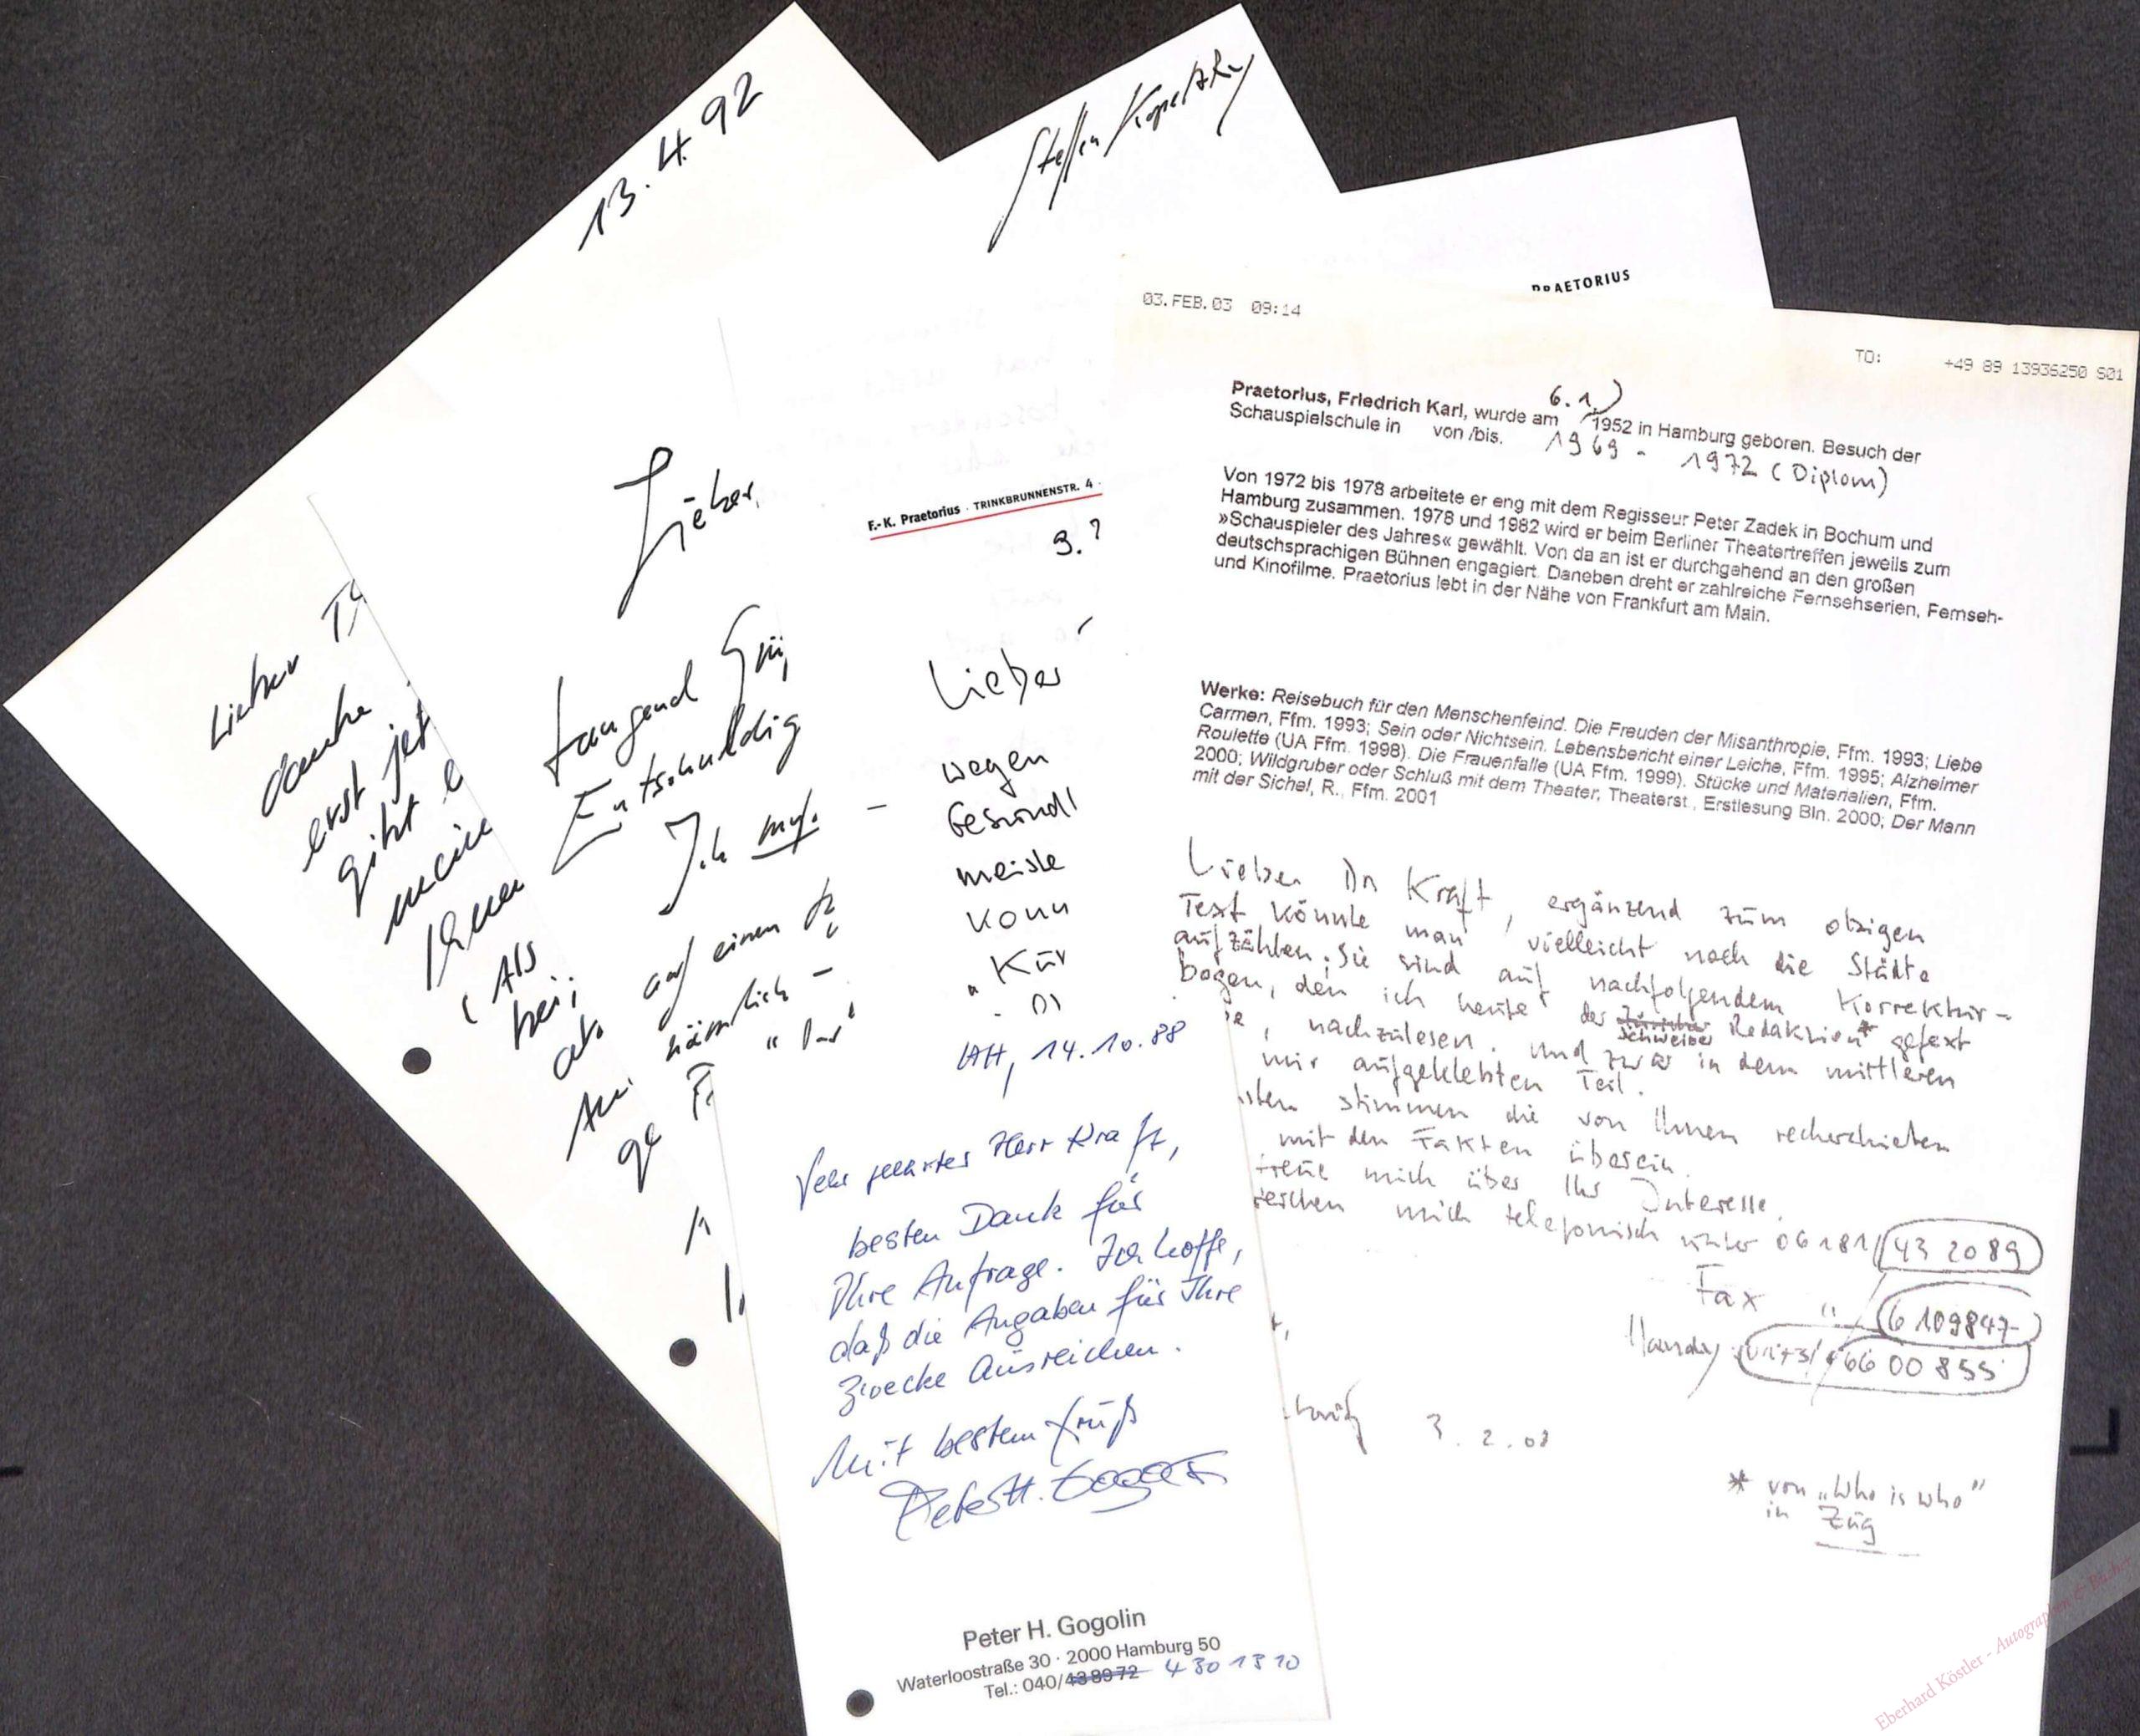 13.4.92
Lieber
danke
erst jet
gibt
meine
Ihnen
( Als
bei;
Steffen Kopetzky
Lieber
tausend Grü
Entschuldig
Ich muß
auf einen
nämlich –
PRAETORIUS
F.-K. Praetorius · TRINKBRUNNENSTR. 4 ·
3.
Lieber
– wegen
Gesundh
meiste
Konn
„Kür
HH, 14.10.88
Sehr geehrter Herr Kraft,
besten Dank für
Ihre Anfrage. Ich hoffe,
daß die Angaben für Ihre
Zwecke ausreichen.
Mit bestem Gruß
Peter H. Gogolin
Peter H. Gogolin
Waterloostraße 30 · 2000 Hamburg 50
Tel.: 040/43 89 72 430 13 10
03.FEB.03 09:14
TO: +49 89 13936250 S01
6.1.
Praetorius, Friedrich Karl, wurde am 1952 in Hamburg geboren. Besuch der
Schauspielschule in von /bis. 1969 - 1972 (Diplom)
Von 1972 bis 1978 arbeitete er eng mit dem Regisseur Peter Zadek in Bochum und
Hamburg zusammen. 1978 und 1982 wird er beim Berliner Theatertreffen jeweils zum
»Schauspieler des Jahres« gewählt. Von da an ist er durchgehend an den großen
deutschsprachigen Bühnen engagiert. Daneben dreht er zahlreiche Fernsehserien, Fernseh-
und Kinofilme. Praetorius lebt in der Nähe von Frankfurt am Main.
Werke: Reisebuch für den Menschenfeind. Die Freuden der Misanthropie, Ffm. 1993; Liebe
Carmen, Ffm. 1993; Sein oder Nichtsein. Lebensbericht einer Leiche, Ffm. 1995; Alzheimer
Roulette (UA Ffm. 1998). Die Frauenfalle (UA Ffm. 1999). Stücke und Materialien, Ffm.
2000; Wildgruber oder Schluß mit dem Theater, Theaterst., Erstlesung Bln. 2000; Der Mann
mit der Sichel, R., Ffm. 2001
Lieber Dr Kraft, ergänzend zum obigen
Text könnte man vielleicht noch die Städte
aufzählen. Sie sind auf nachfolgendem Korrektur-
bogen, den ich heute der Schweizer Redaktion* gefaxt
, nachzulesen. Und zwar in dem mittleren
mir aufgeklebten Teil.
stimmen die von Ihnen recherchierten
mit den Fakten überein.
freue mich über Ihr Interesse.
mich telefonisch unter 06181/43 20 89
Fax " 6109847
Handy 6600855
3.2.03
* von „Who is who"
in Zug
Eberhard Köstler - Autographen & Bücher